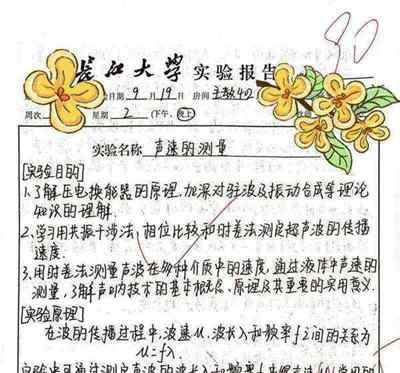 90
长江大学 实验报告
日期 9 月 19 日 房间 主教402
周次 星期 2 (下午、晚上)
实验名称 声速的测量
[实验目的]
1、了解压电换能器的原理,加深对驻波及振动合成等理论
知识的理解.
2、学习用共振干涉法,相位比较和时差法测定超声波的传播
速度.
3、用时差法测量声波在多种介质中的速度,通过液体中声速的
测量,了解声呐技术的基本概念、原理及其重要的实用意义.
[实验原理]
在波的传播过程中,波速u.波长λ和频率f之间的关系为
u=fλ.